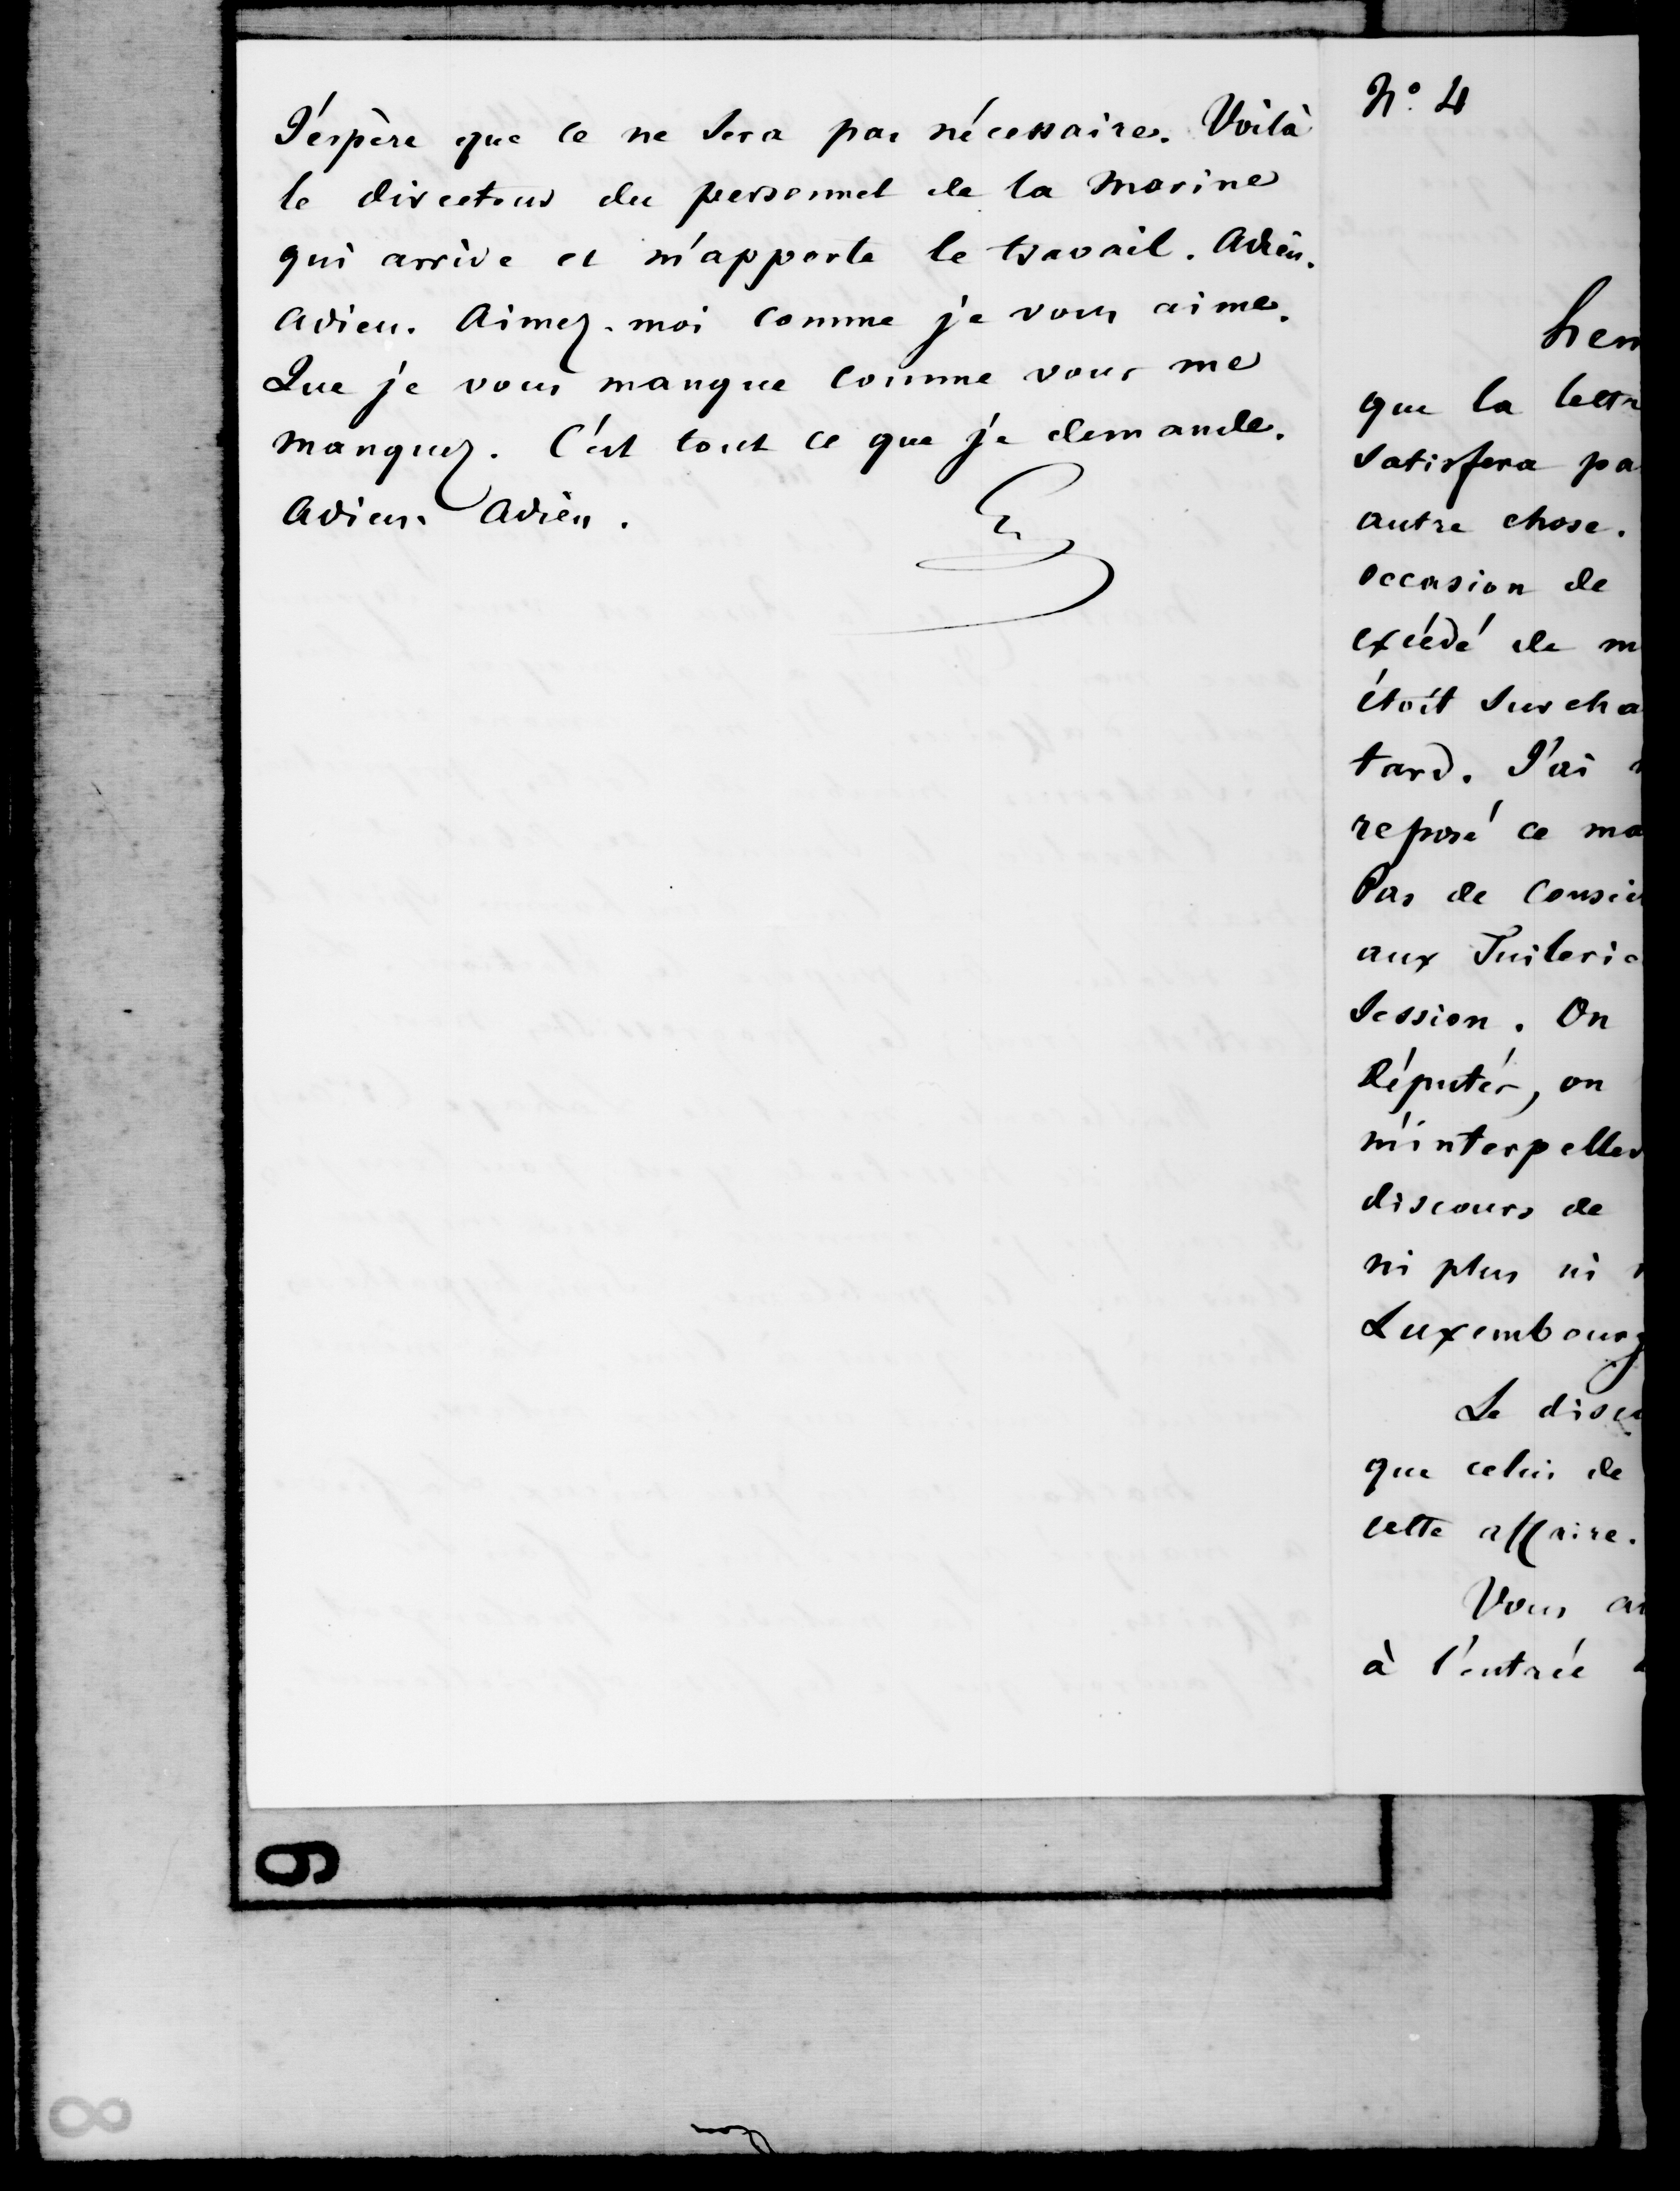 J'espère que ce ne sera pas nécessaire. Voilà
le directeur du personnel de la Marine
qui arrive et m'apporte le travail. Adieu.
Adieu. Aimez-moi comme je vous aime.
Que je vous manque comme vous me
manquez. C'est tout ce que je demande.
Adieu. Adieu.
N° 4
que la lettr
satisfera pa
autre chose.
occasion de
excédé de m
étoit surcha
tard. J'ai
reposé ce ma
Pas de
aux Tuilerie
session. On
députés, on
m'interpeller
discours de
ni plus ni
Luxembourg
Le disc
que celui de
cette affaire.
Vous
à l'entrée
9
8